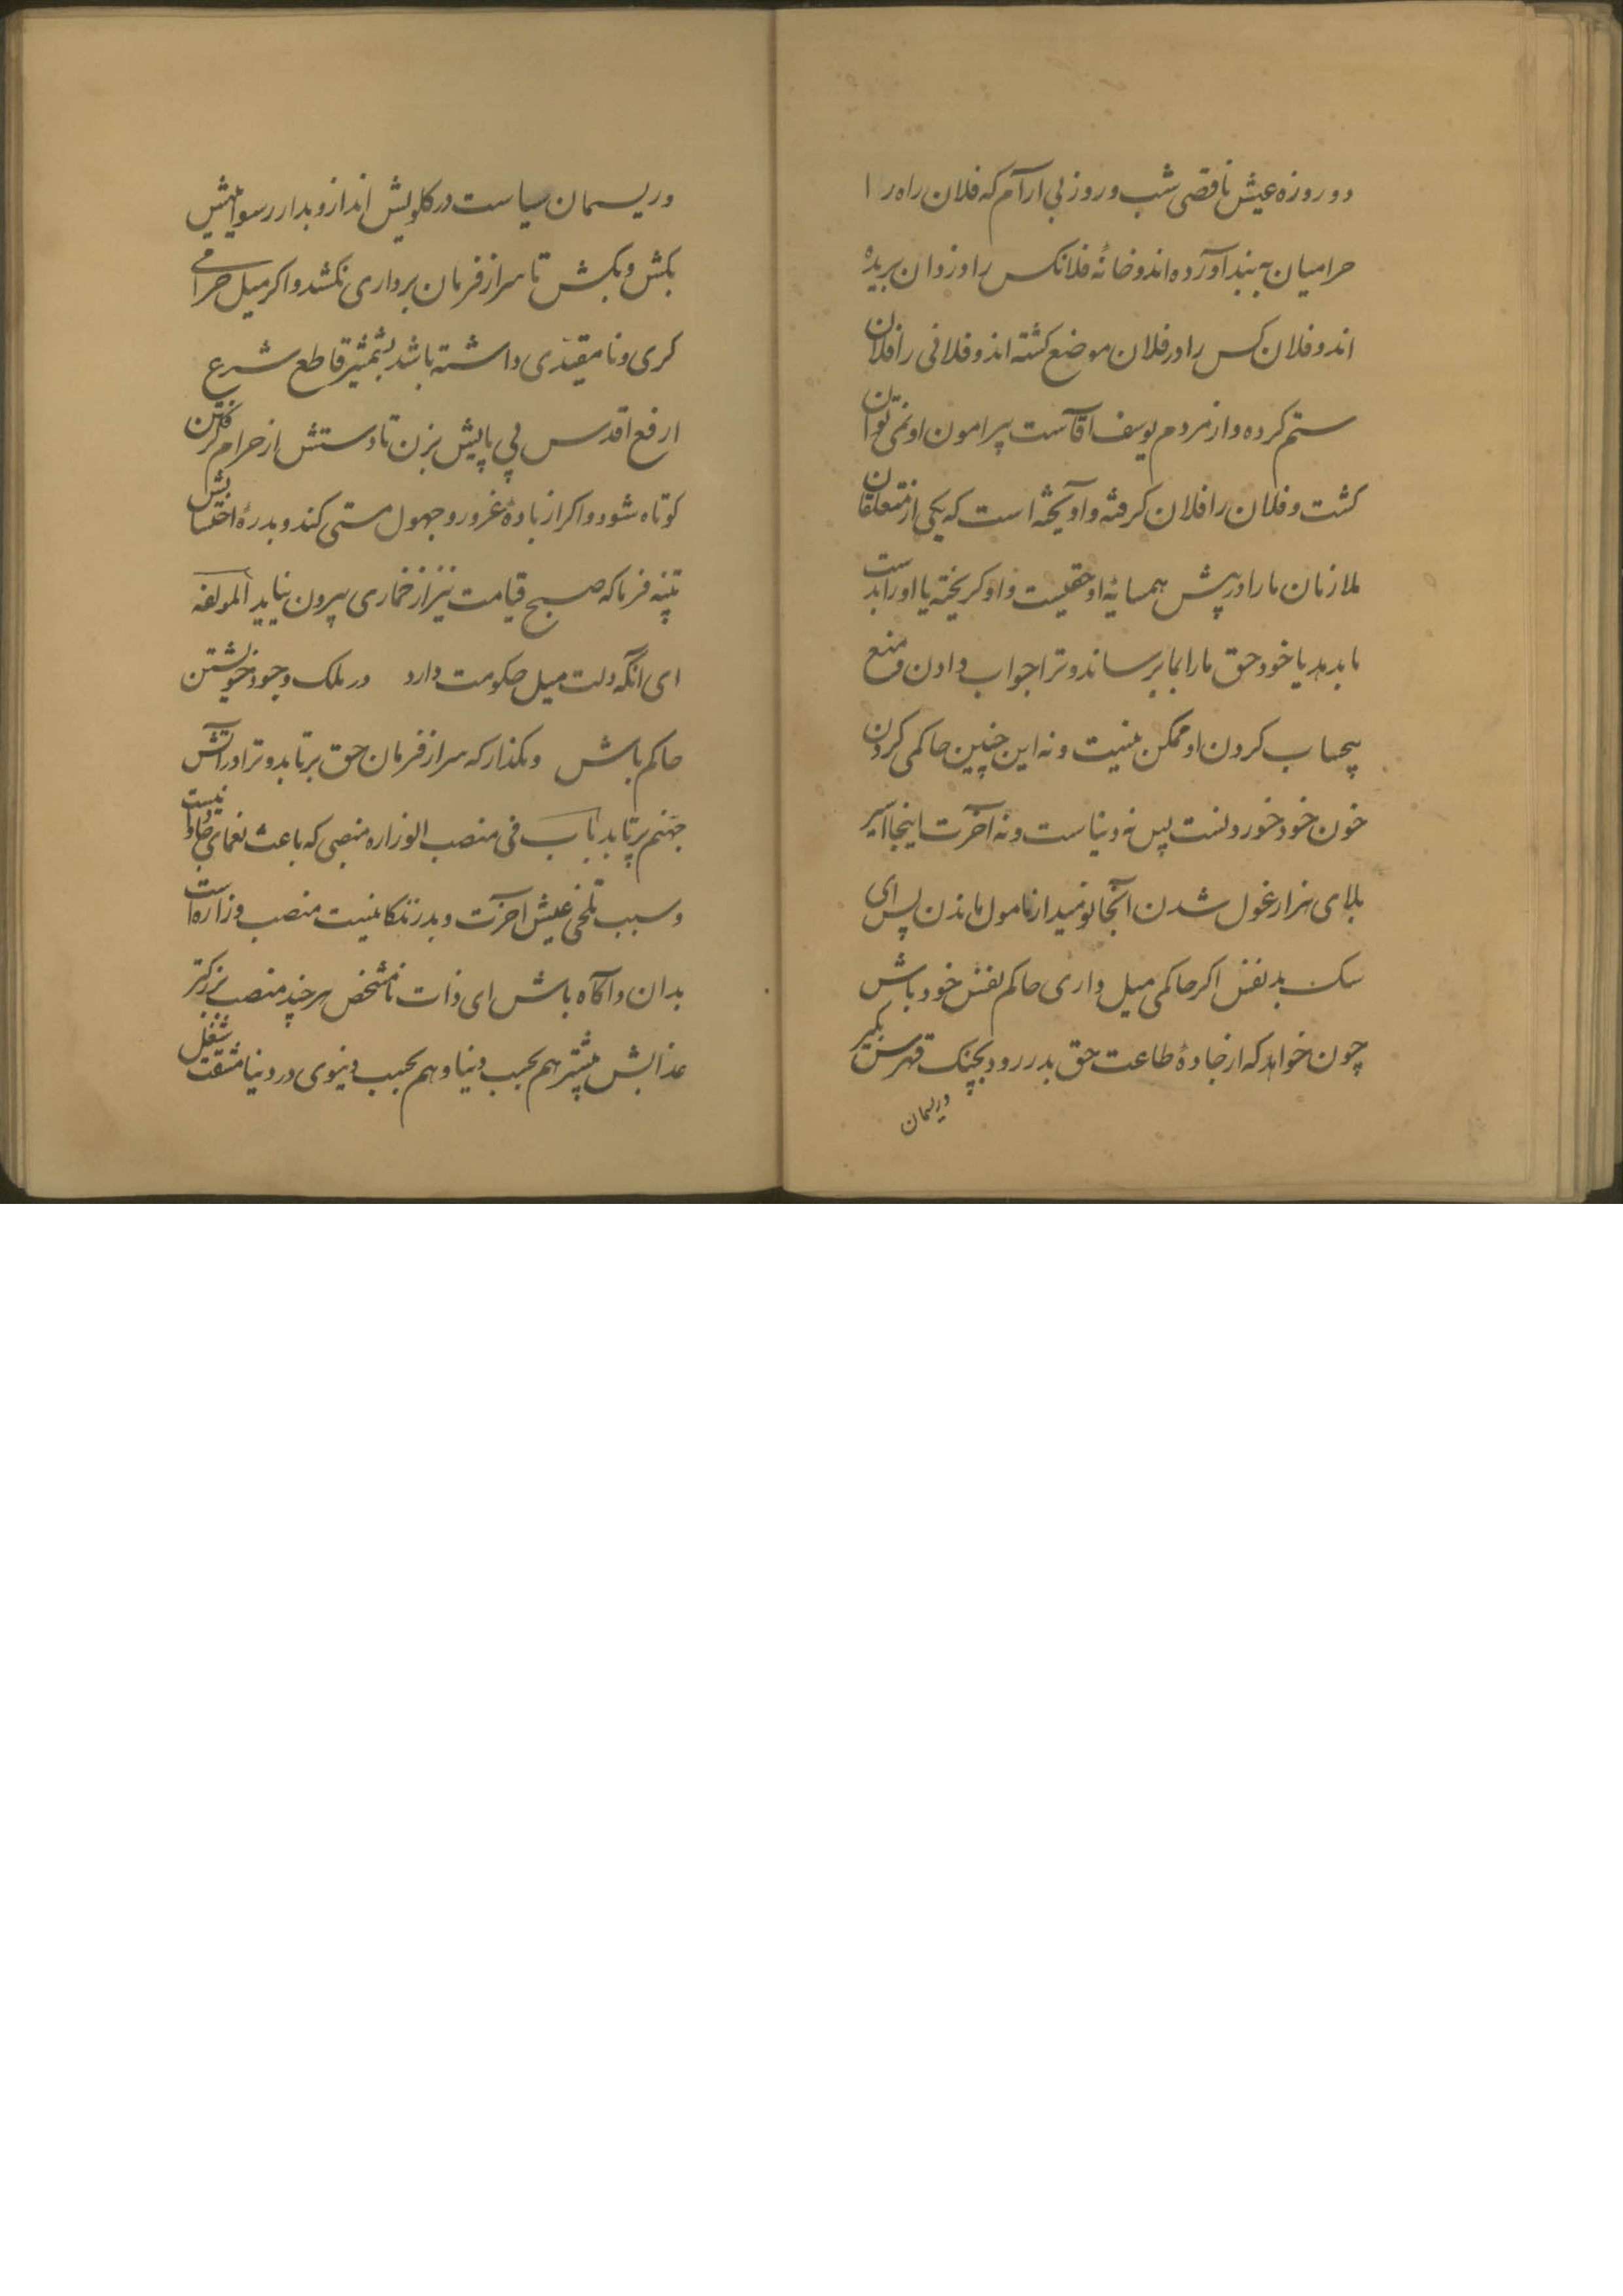 دو روزه عیش ناقصی شب و روز بی ارآم که فلان راه را
حرامیان به بند آورده اند و خانهٔ فلانکس را دزدان بریده
اند و فلان کس را در فلان موضع کشته اند و فلانی را فلان
ستم کرده و از مردم یوسف اقاست پیرامون او نمی توان
کشت و فلان را فلان کرفته و آویخته است که یکی از متعلقان
ملازمان ما را در پیش همسایهٔ او حقیست و او کریخته یا او را بدست
ما بدهد یا خود حق ما را بما برساند و ترا جواب دادن و منع
بیحساب کردن او ممکن نیست و نه این چنین حاکمی کردن
خون خود خوردنست پس نه دنیاست و نه آخرت اینجا اسیر
بلای هزار غول شدن آنجا نومید از مامول ماندن پس ای
سک بد نفس اکر حاکمی میل داری حاکم نفس خود باش
چون خواهد که از جادهٔ طاعت حق بدر رود بچنک قهرش بکیر
وریسمان
وریسمان سیاست در کلویش انداز و بدار رسوائیش
بکش و بکش تا سر از فرمان برداری نکشد و اکر میل حرامی
کری و نامقیدی داشته باشد بشمشیر قاطع شرع
ارفع اقدس پی پایش بزن تا دستش از حرام کرفتن
کوتاه شود و اکر از بادهٔ غرور و جهول مستی کند و بدرهٔ احتسابش
تنبیه فرما که صبح قیامت نیز از خماری بیرون نیاید لمولفه
ای آنکه دلت میل حکومت دارد در ملک وجود خویشتن
حاکم باش ومکذار که سر از فرمان حق برتابد و ترا در آتش
جهنم برتابد باب فی منصب الوزاره منصبی که باعث نغمای
و سبب تلخی عیش آخرت و بدرنکا نیست منصب وزاره است
بدان و آکاه باش ای ذات نامشخص هر چند منصب بزرکتر
عذابش بیشتر هم بحسب دنیا و هم بحسب دنیوی در دنیا مشقت شغل